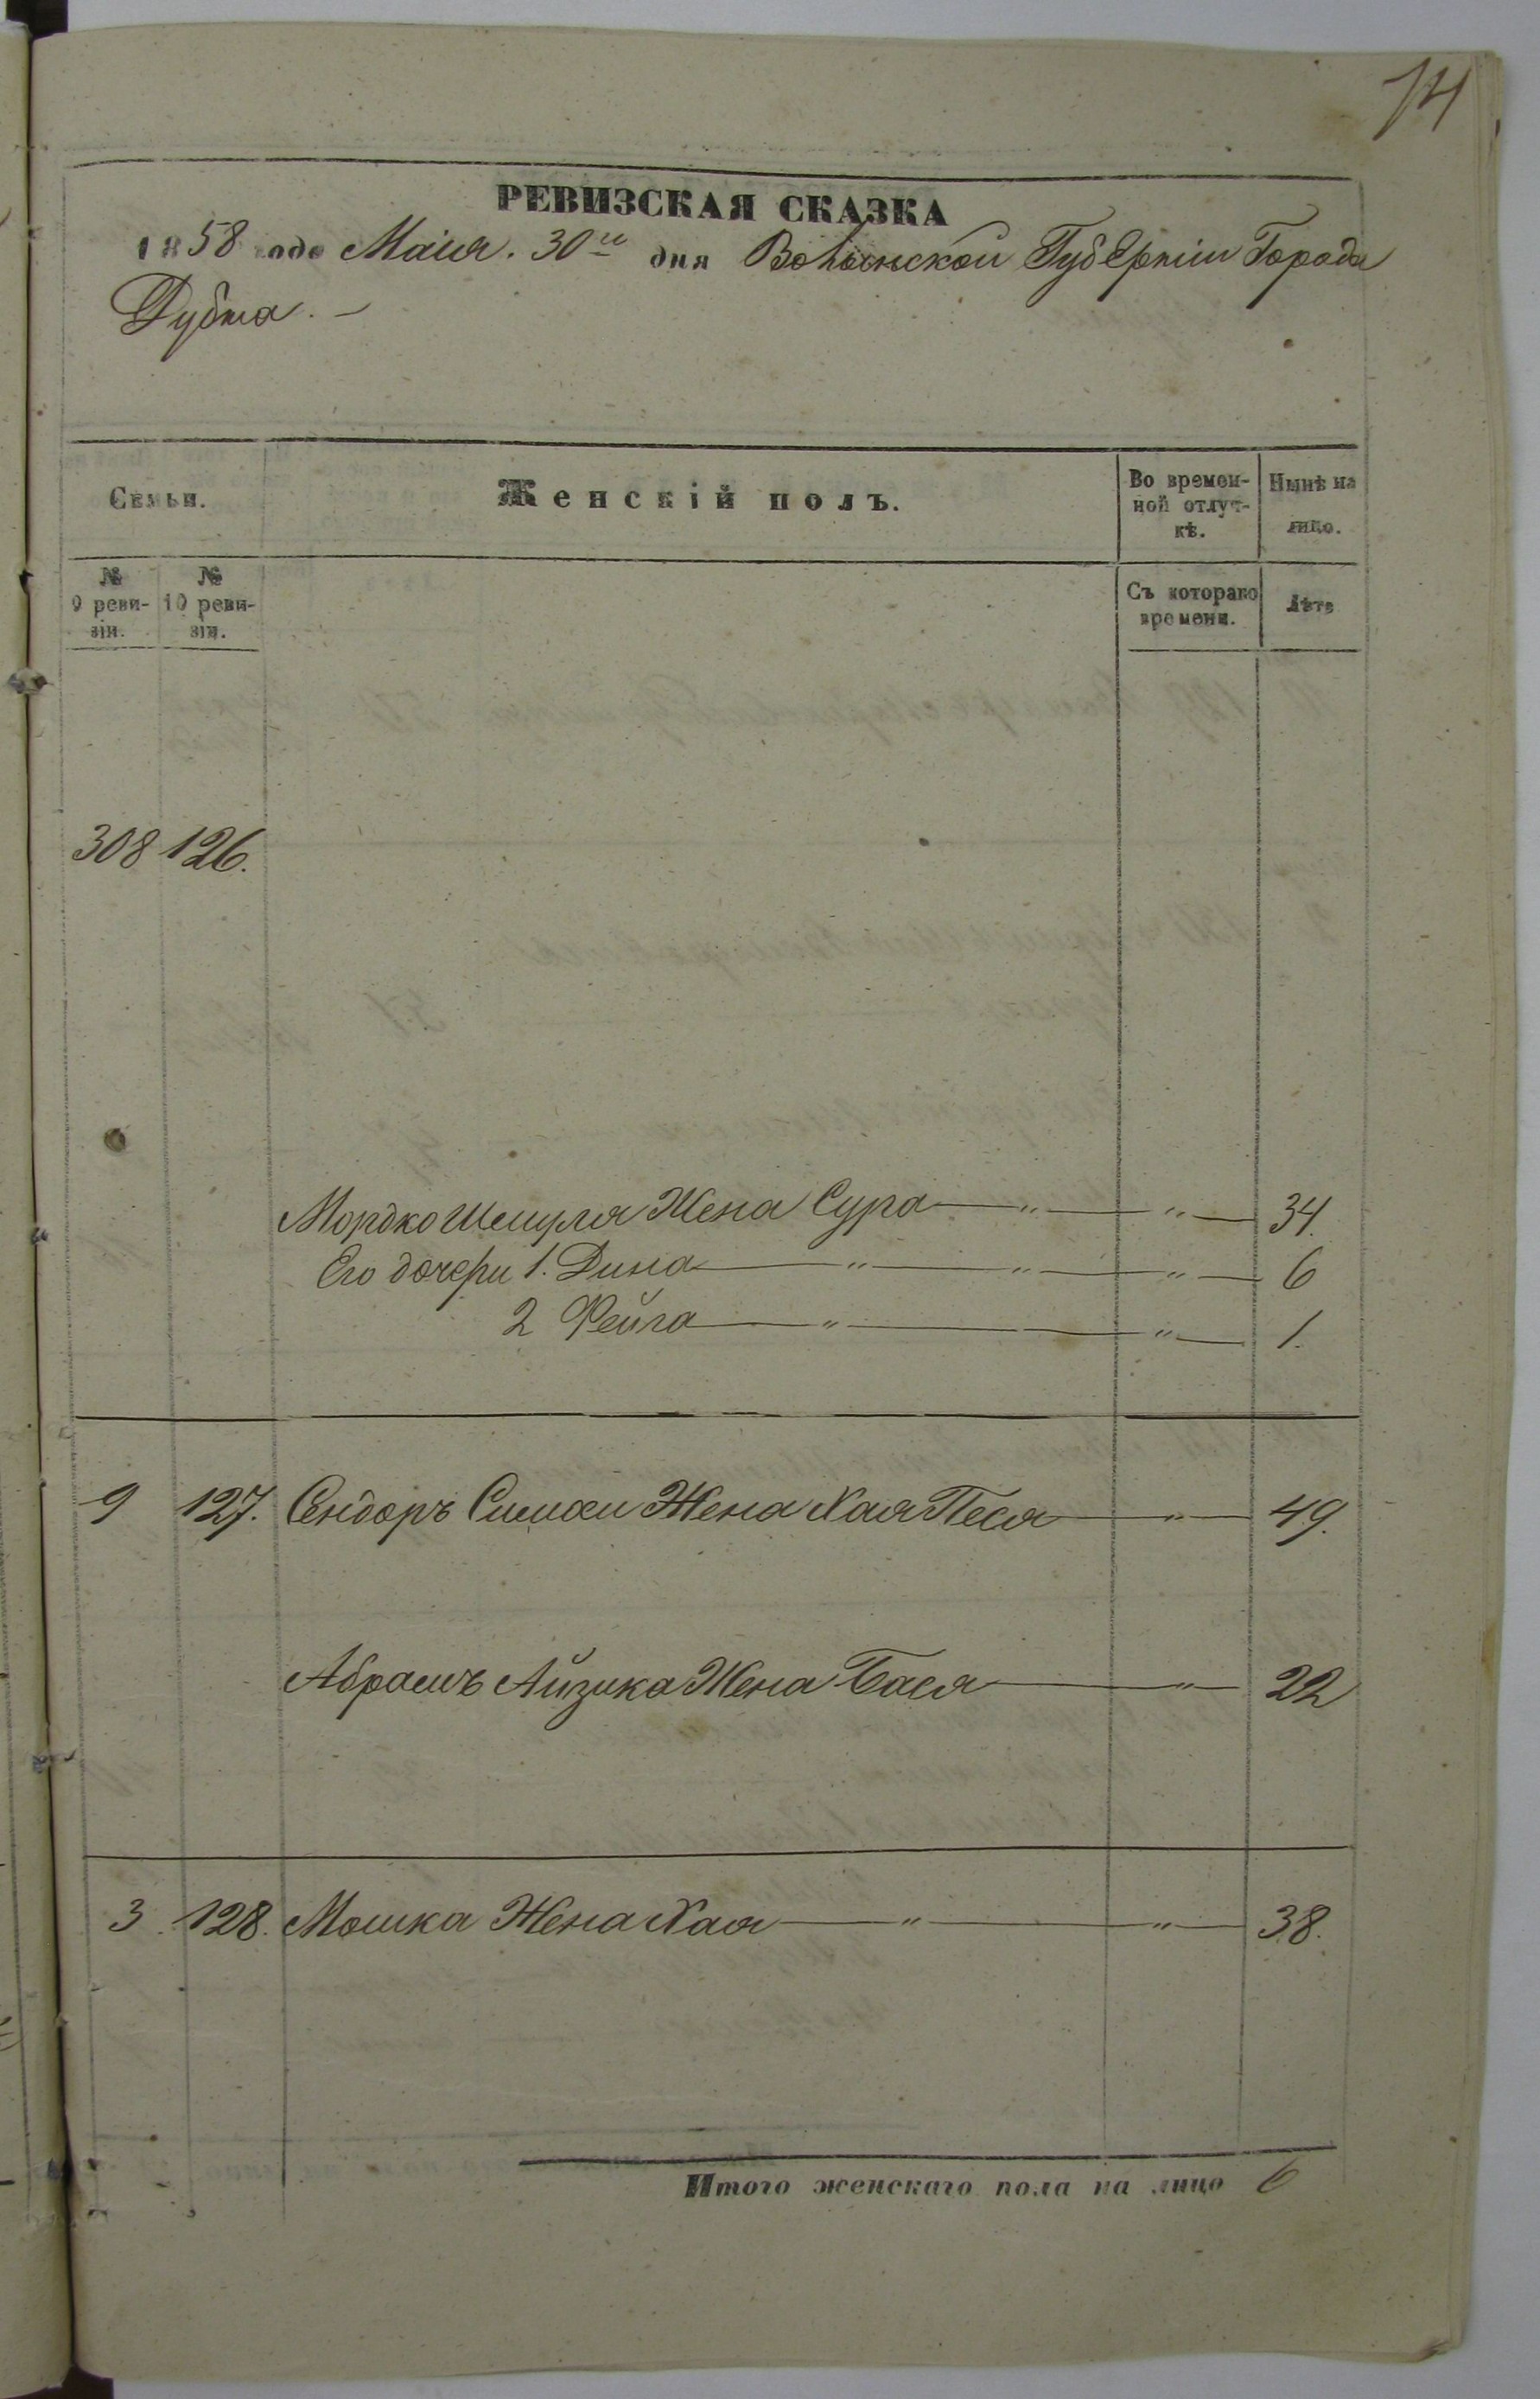 74
РЕВИЗСКАЯ СКАЗКА
1858 года Маія. 30го дня Волынской Губерніи Города
Дубна. —
Семьи.
Женскій полъ.
Во времен-
ной отлуч-
кѣ.
Нынѣ на
лицо.
№
9 реви-
зіи.
№
10 реви-
зіи.
Съ котораго
времени.
Лѣта
308 126.
Мордко Шмуля Жена Сура — „ — „ — 34.
Его дочери 1. Дина — „ — „ — „ — 6
2 Фейга — „ — „ — 1.
9 127. Сендоръ Симхи Жена Хая Песя — „ — 49.
Абрамъ Айзика Жена Бася — „ — 22
3 128. Мошка Жена Хая — „ — „ — 38.
Итого женскаго пола на лицо 6